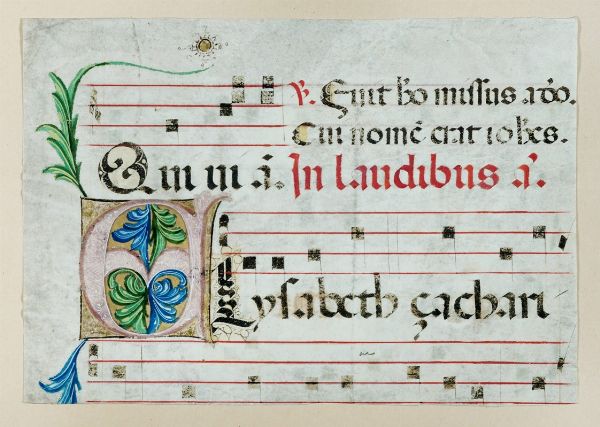 ℣. Fuit hō missus a dō.
Cui nomē erat iohēs.
In laudibus ā.
Elysabeth çachari